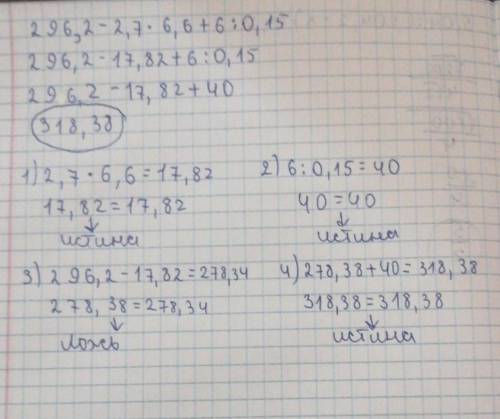 296,2 - 2,7 · 6,6 + 6 : 0,15
296,2 - 17,82 + 6 : 0,15
296,2 - 17,82 + 40
318,38
1) 2,7 · 6,6 = 17,82
17,82 = 17,82
истина
2) 6 : 0,15 = 40
40 = 40
истина
3) 296,2 - 17,82 = 278,34
278,38 = 278,34
ложь
4) 278,38 + 40 = 318,38
318,38 = 318,38
истина